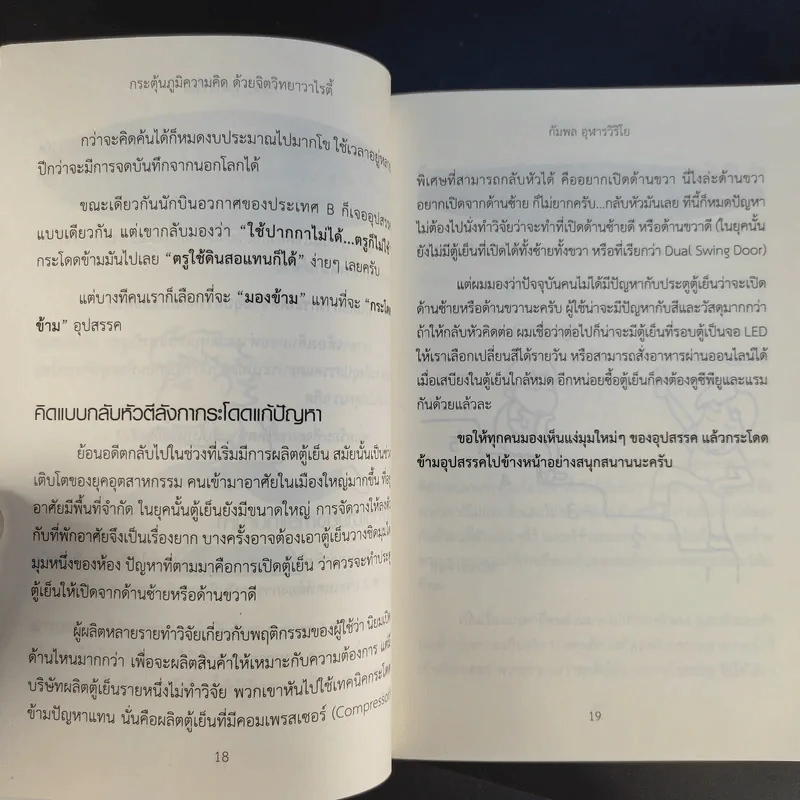 กระตุ้นภูมิความคิด ด้วยจิตวิทยาวาไรตี้
กว่าจะคิดค้นได้ก็หมดงบประมาณไปมากโข ใช้เวลาอยู่หลาย
ปีกว่าจะมีการจดบันทึกจากนอกโลกได้
ขณะเดียวกันนักบินอวกาศของประเทศ B ก็เจออุปสรร
แบบเดียวกัน แต่เขากลับมองว่า "ใช้ปากกาไม่ได้...ตรูก็ไม่ใช้
กระโดดข้ามมันไปเลย "ตรูใช้ดินสอแทนก็ได้" ง่ายๆ เลยครับ
แต่บางทีคนเราก็เลือกที่จะ "มองข้าม" แทนที่จะ "กระโด
ข้าม" อุปสรรค
คิดแบบกลับหัวตีลังกากระโดดแก้ปัญหา
ย้อนอดีตกลับไปในช่วงที่เริ่มมีการผลิตตู้เย็น สมัยนั้นเป็นช่ว
เติบโตของยุคอุตสาหกรรม คนเข้ามาอาศัยในเมืองใหญ่มากขึ้น ที่อยู่
อาศัยมีพื้นที่จำกัด ในยุคนั้นตู้เย็นยังมีขนาดใหญ่ การจัดวางให้ลงตัว
กับที่พักอาศัยจึงเป็นเรื่องยาก บางครั้งอาจต้องเอาตู้เย็นวางชิดมุมใด
มุมหนึ่งของห้อง ปัญหาที่ตามมาคือการเปิดตู้เย็น ว่าควรจะทำประตู
ตู้เย็นให้เปิดจากด้านซ้ายหรือด้านขวาดี
ผู้ผลิตหลายรายทำวิจัยเกี่ยวกับพฤติกรรมของผู้ใช้ว่า นิยมเปิด
ด้านไหนมากกว่า เพื่อจะผลิตสินค้าให้เหมาะกับความต้องการ แต่มี
บริษัทผลิตตู้เย็นรายหนึ่งไม่ทำวิจัย พวกเขาหันไปใช้เทคนิคกระโดด
ข้ามปัญหาแทน นั่นคือผลิตตู้เย็นที่มีคอมเพรสเซอร์ (Compressor)
18
กัมพล อุฬารวิริโย
พิเศษที่สามารถกลับหัวได้ คืออยากเปิดด้านขวา นี่ไงล่ะด้านขวา
อยากเปิดจากด้านซ้าย ก็ไม่ยากครับ...กลับหัวมันเลย ทีนี้ก็หมดปัญหา
ไม่ต้องไปนั่งทำวิจัยว่าจะทำที่เปิดด้านซ้ายดี หรือด้านขวาดี (ในยุคนั้น
ยังไม่มีตู้เย็นที่เปิดได้ทั้งซ้ายทั้งขวา หรือที่เรียกว่า Dual Swing Door)
แต่ผมมองว่าปัจจุบันคนไม่ได้มีปัญหากับประตูตู้เย็นว่าจะเปิด
ด้านซ้ายหรือด้านขวานะครับ ผู้ใช้น่าจะมีปัญหากับสีและวัสดุมากกว่า
ถ้าให้กลับหัวคิดต่อ ผมเชื่อว่าต่อไปก็น่าจะมีตู้เย็นที่รอบตู้เป็นจอ LED
ให้เราเลือกเปลี่ยนสีได้รายวัน หรือสามารถสั่งอาหารผ่านออนไลน์ได้
เมื่อเสบียงในตู้เย็นใกล้หมด อีกหน่อยซื้อตู้เย็นก็คงต้องดูซีพียูและแรม
กันด้วยแล้วละ
ขอให้ทุกคนมองเห็นแง่มุมใหม่ๆ ของอุปสรรค แล้วกระโดด
ข้ามอุปสรรคไปข้างหน้าอย่างสนุกสนานนะครับ
19